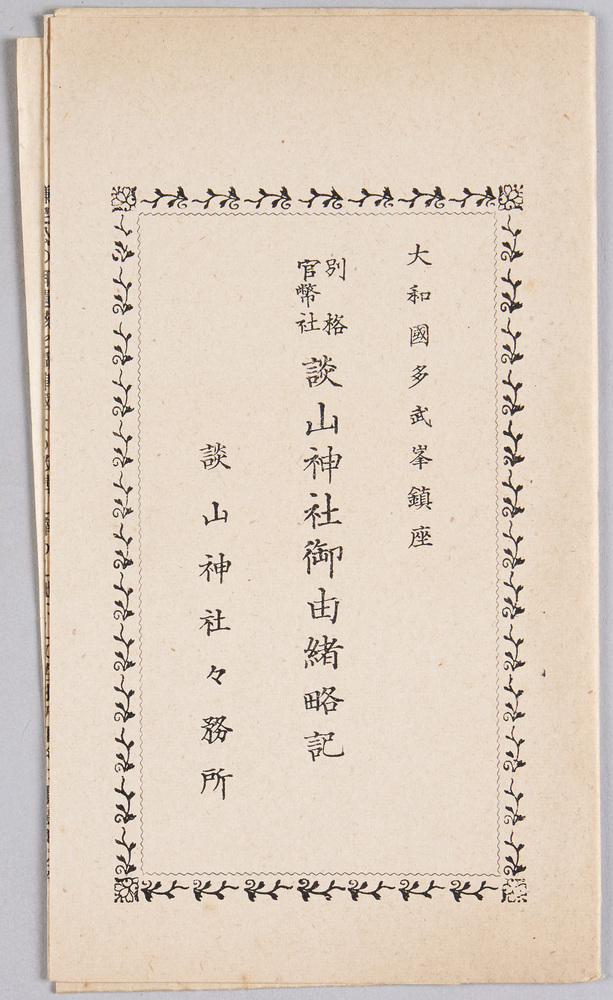 大和國多武峯鎮座
別格官幣社 談山神社御由緒略記
談山神社々務所